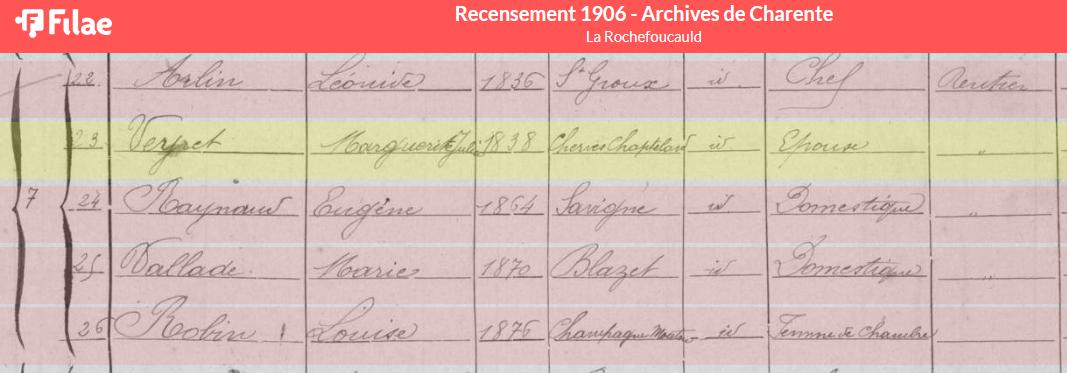 Filae
Recensement 1906 - Archives de Charente
La Rochefoucauld
22 Arlin Léonide 1836 St Groux id. Chef Rentier
23 Verret Marguerite Julie 1838 Cherves Chatelard id. Epouse "
7 24 Raynaud Eugène 1864 Savigné id. Domestique "
25 Vallade Marie 1870 id Domestique "
26 Robin Louise 1876 Champagne Mouton id Femme de Chambre